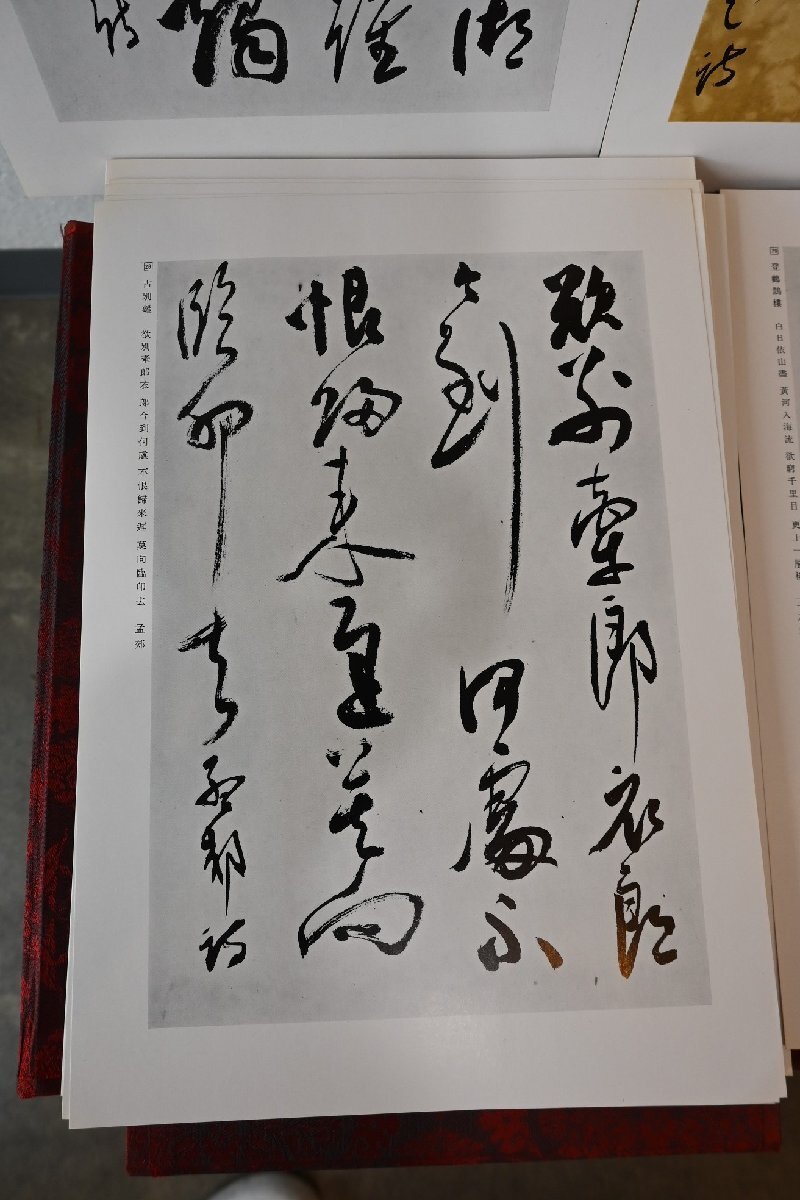 之詩
詩
登鸛鵲樓 白日依山盡 黃河入海流 欲窮千里目 更上一層樓
欲別牽郎衣郎
今到何處不
恨歸來遲莫向
臨邛去孟郊詩
古別離 欲別牽郎衣 郎今到何處 不恨歸來遲 莫向臨邛去 孟郊